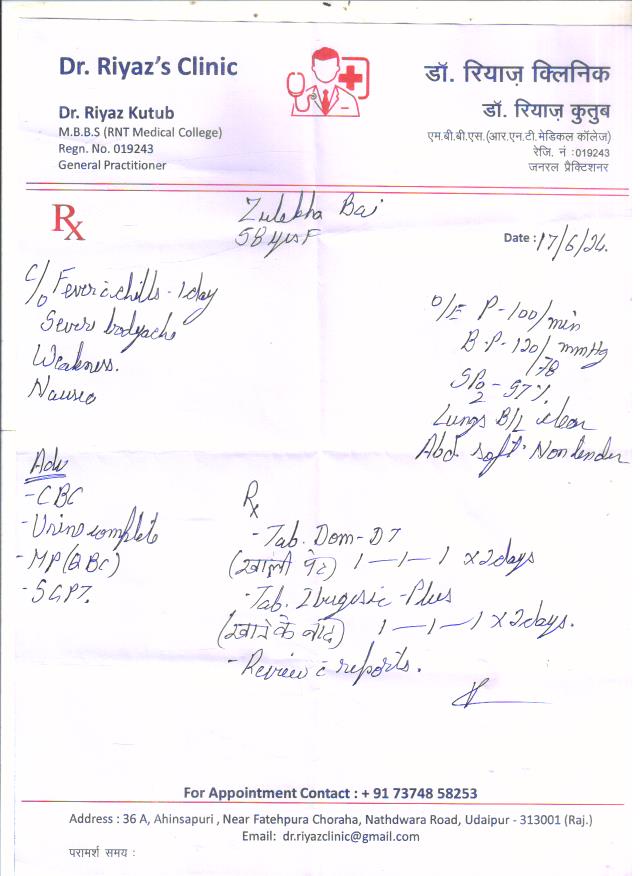 Dr. Riyaz's Clinic
Dr. Riyaz Kutub
M.B.B.S (RNT Medical College)
Regn. No. 019243
General Practitioner
डॉ. रियाज़ क्लिनिक
डॉ. रियाज़ कुतुब
एम.बी.बी.एस.(आर.एन.टी.मेडिकल कॉलेज)
रेजि. नं :019243
जनरल प्रैक्टिशनर
Rx
Zulekha Bai
58 yrs F
Date : 17/6/24.
C/o Fever c chills - 1 day
Severe bodyache
Weakness.
Nausea
O/E P-100/min
B.P-120/78 mmHg
SPO2 - 97%
Lungs B/L clear
Abd. soft. Nontender
Adv
- CBC
- Urine complete
- MP (QBC)
- SGPT.
Rx
- Tab. Dom-DT
(खाली पेट) 1—1—1 x 2 days
- Tab. Ibugesic-Plus
(खाने के बाद) 1—1—1 x 2 days.
- Review c reports.
For Appointment Contact : + 91 73748 58253
Address : 36 A, Ahinsapuri , Near Fatehpura Choraha, Nathdwara Road, Udaipur - 313001 (Raj.)
Email: dr.riyazclinic@gmail.com
परामर्श समय :